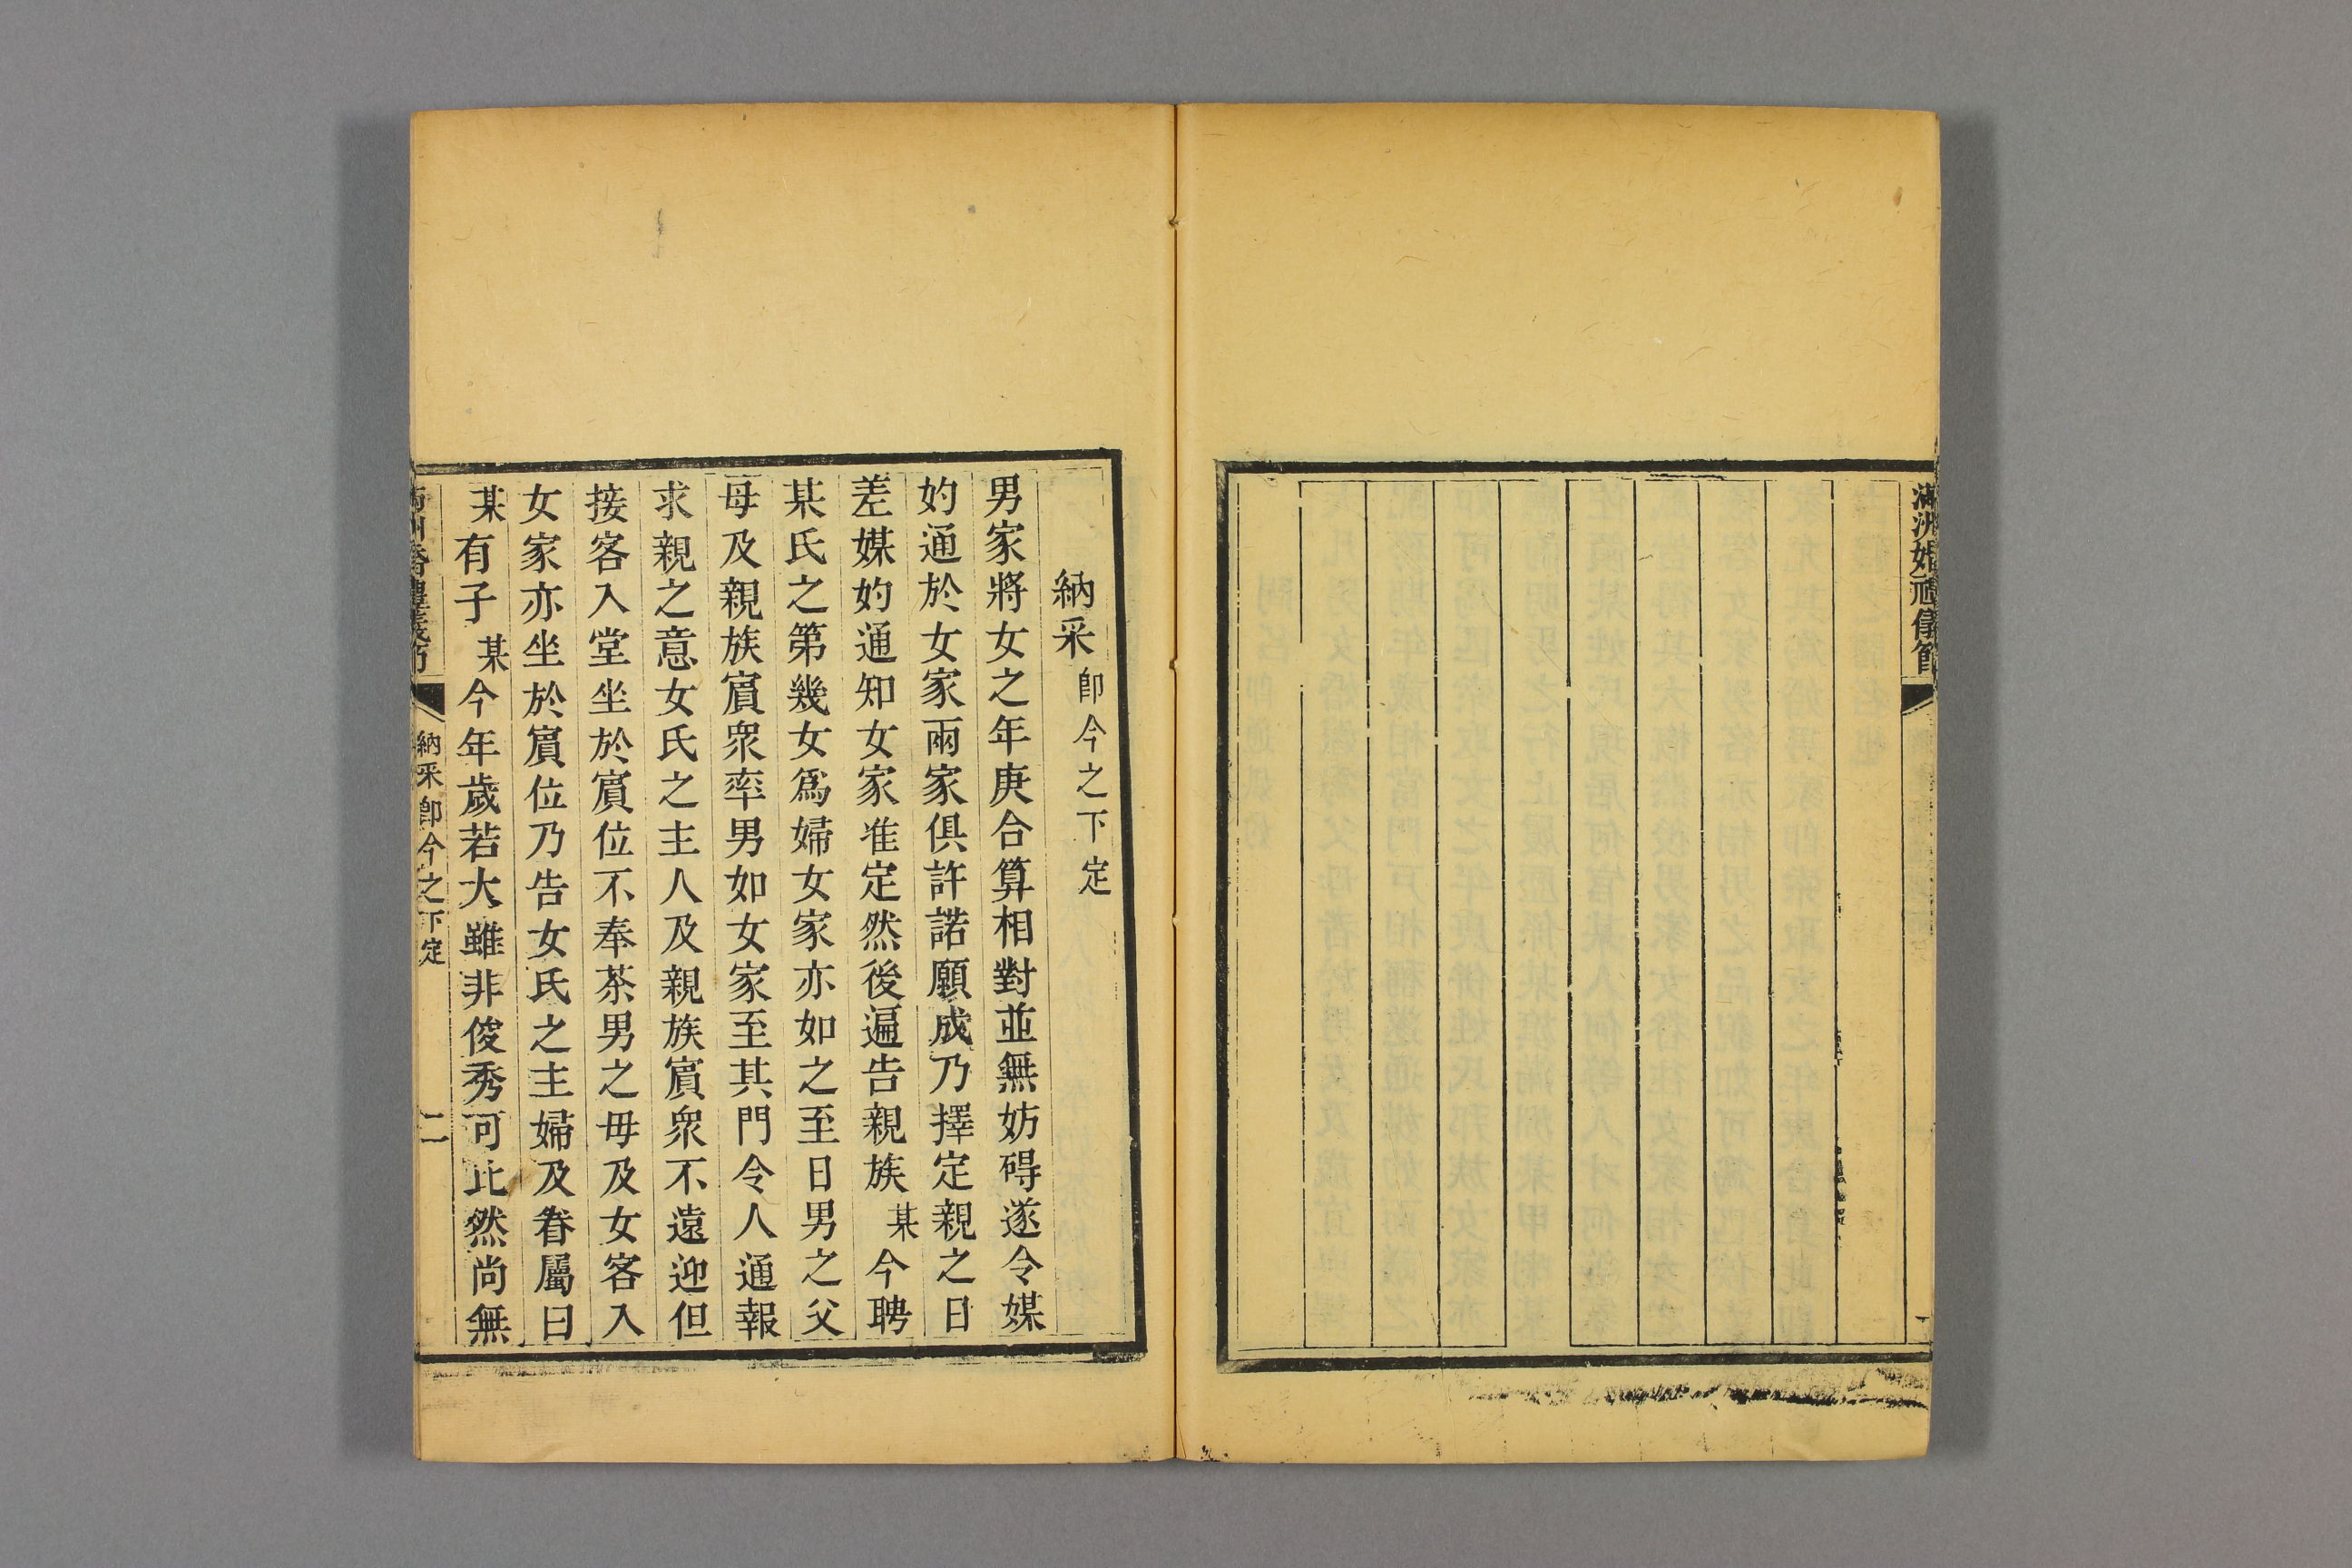 滿洲婚禮儀節
納采卽今之下定
男家將女之年庚合算相對並無妨碍遂令媒
妁通於女家兩家俱許諾願成乃擇定親之日
差媒妁通知女家准定然後遍告親族某今聘
某氏之第幾女爲婦女家亦如之至日男之父
母及親族賓衆率男如女家至其門令人通報
求親之意女氏之主人及親族賓衆不遠迎但
接客入堂坐於賓位不奉茶男之母及女客入
女家亦坐於賓位乃告女氏之主婦及眷屬曰
某有子某今年歲若大雖非俊秀可比然尚無
納采卽今之下定
二